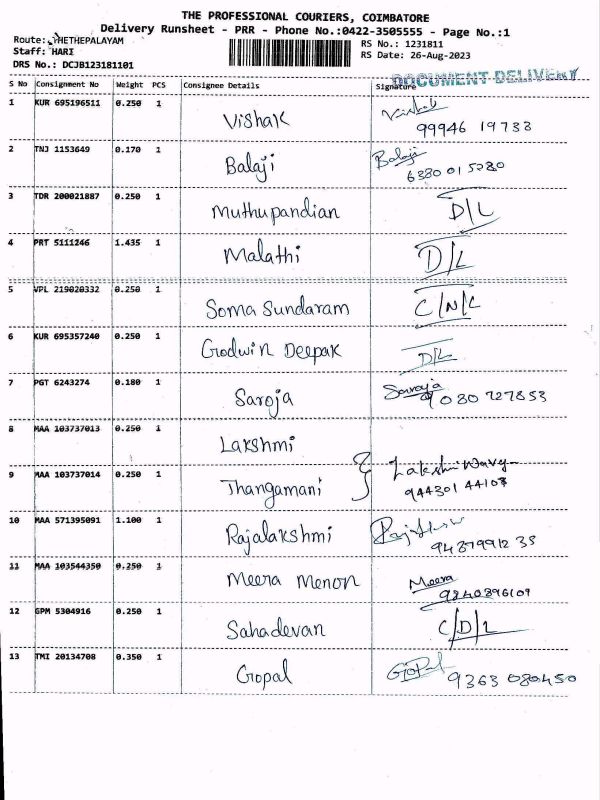 THE PROFESSIONAL COURIERS, COIMBATORE
Delivery Runsheet - PRR - Phone No.:0422-3505555 - Page No.:1
Route: THETHEPALAYAM RS No.: 1231811
Staff: HARI RS Date: 26-Aug-2023
DRS No.: DCJB123181101
DOCUMENT DELIVERY
S No Consignment No Weight PCS Consignee Details Signature
1 KUR 695196511 0.250 1 Vishak Vishak
99946 19733
2 TNJ 1153649 0.170 1 Balaji Balaji
6380 015280
3 TDR 200021887 0.250 1 Muthupandian D/L
4 PRT 5111246 1.435 1 Malathi D/L
5 VPL 219020332 0.250 1 Soma Sundaram C/N/L
6 KUR 695357240 0.250 1 Godwin Deepak D/L
7 PGT 6243274 0.180 1 Saroja Saroja
9080 727853
8 MAA 103737013 0.250 1 Lakshmi
9 MAA 103737014 0.250 1 Thangamani
94430 1 44103
10 MAA 571395091 1.100 1 Rajalakshmi
9487999123 3
11 MAA 103544350 0.250 1 Meera Menon Meera
9840896109
12 GPM 5304916 0.250 1 Sahadevan C/D/L
13 TMI 20134708 0.350 1 Gopal GOPAL
9363 080450